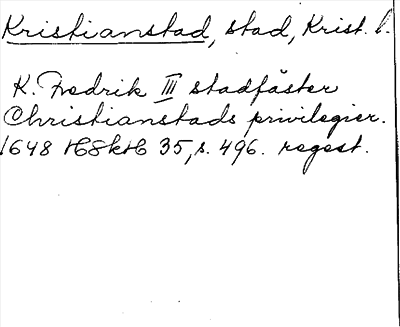 Kristianstad, stad, Krist. l.
K. Fredrik III stadfäster
Christianstads privilegier.
1648 HSkH 35, s. 496. regest.